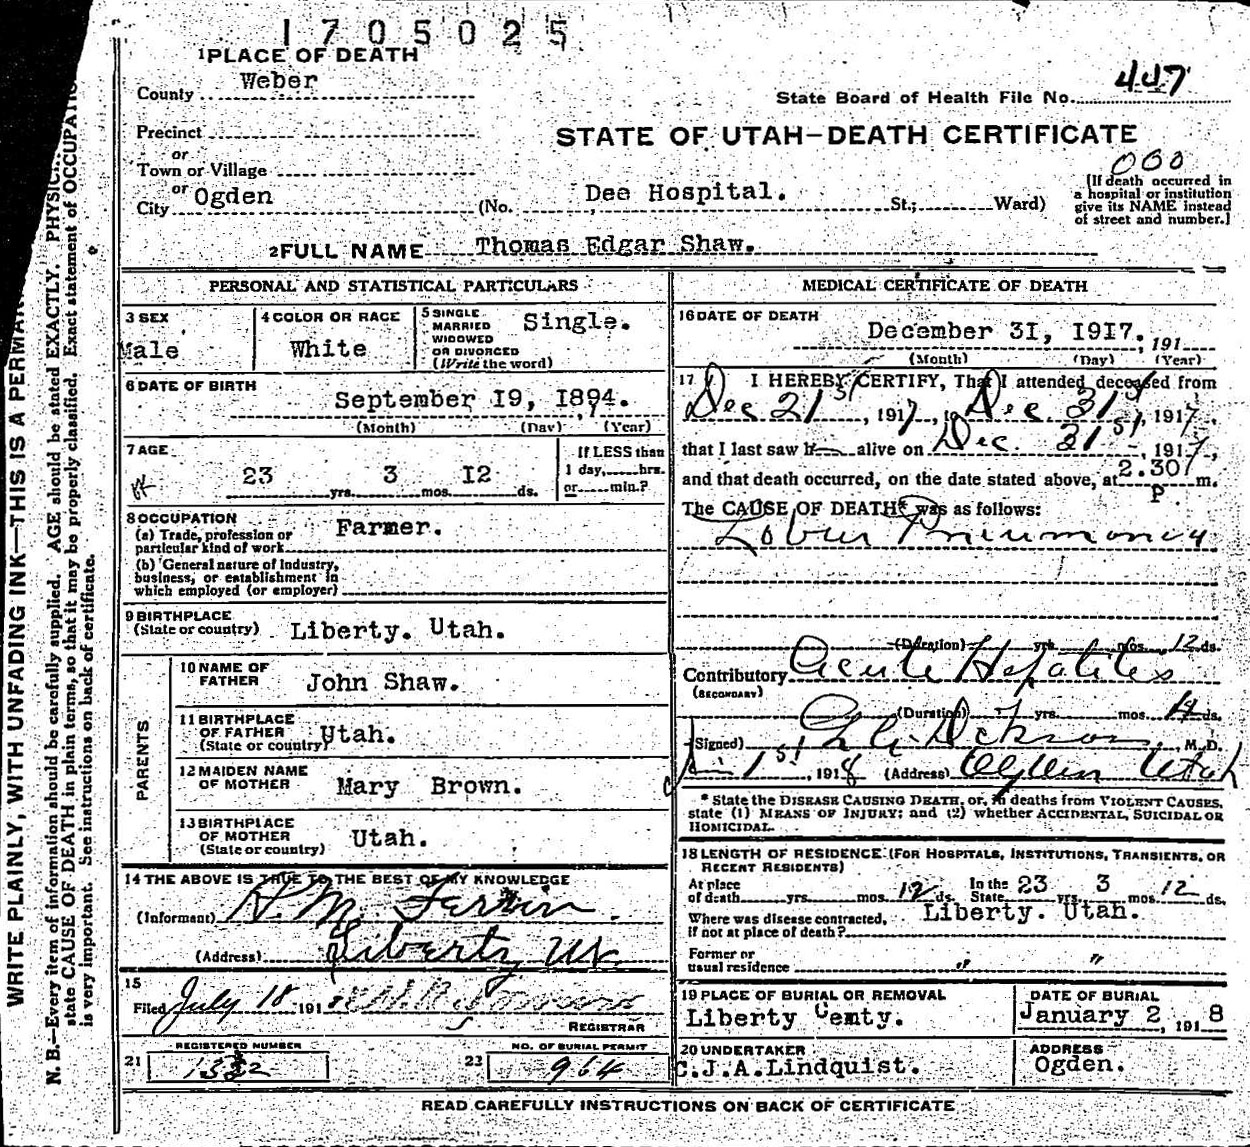 1705025
1 PLACE OF DEATH
County Weber
State Board of Health File No. 447
Precinct
STATE OF UTAH—DEATH CERTIFICATE
or
Town or Village
000
or
City Ogden (No. Dee Hospital. St.; Ward)
[If death occurred in
a hospital or institution
give its NAME instead
of street and number.]
2 FULL NAME Thomas Edgar Shaw.
PERSONAL AND STATISTICAL PARTICULARS
3 SEX
Male
4 COLOR OR RACE
White
5 SINGLE
MARRIED
WIDOWED
OR DIVORCED
(Write the word)
Single.
6 DATE OF BIRTH
September 19, 1894.
(Month) (Day) (Year)
7 AGE
23 yrs. 3 mos. 12 ds.
If LESS than
1 day, hrs.
or min.?
8 OCCUPATION
(a) Trade, profession or
particular kind of work Farmer.
(b) General nature of Industry,
business, or establishment in
which employed (or employer)
9 BIRTHPLACE
(State or country) Liberty. Utah.
PARENTS
10 NAME OF
FATHER John Shaw.
11 BIRTHPLACE
OF FATHER
(State or country) Utah.
12 MAIDEN NAME
OF MOTHER Mary Brown.
13 BIRTHPLACE
OF MOTHER
(State or country) Utah.
14 THE ABOVE IS TRUE TO THE BEST OF MY KNOWLEDGE
(Informant) H. M. Ferrin.
(Address) Liberty Ut.
15
Filed July 18 191
REGISTRAR
21 REGISTERED NUMBER
23 NO. OF BURIAL PERMIT
964
MEDICAL CERTIFICATE OF DEATH
16 DATE OF DEATH
December 31, 1917. 191
(Month) (Day) (Year)
17 I HEREBY CERTIFY, That I attended deceased from
Dec 21st, 1917, to Dec. 31st, 1917,
that I last saw h alive on Dec. 31st, 1917,
and that death occurred, on the date stated above, at 2.30 P m.
The CAUSE OF DEATH* was as follows:
Lobar Pneumonia
(Duration) yrs. mos. 12 ds.
Contributory Acute Hepatites
(SECONDARY)
(Duration) yrs. mos. 14 ds.
(Signed) M. D.
Jan 1st, 1918 (Address) Ogden Utah
* State the DISEASE CAUSING DEATH, or, in deaths from VIOLENT CAUSES,
state (1) MEANS OF INJURY; and (2) whether ACCIDENTAL, SUICIDAL OR
HOMICIDAL.
18 LENGTH OF RESIDENCE (FOR HOSPITALS, INSTITUTIONS, TRANSIENTS, OR
RECENT RESIDENTS)
At place
of death yrs. mos. 12 ds. In the State 23 yrs. 3 mos. 12 ds.
Where was disease contracted,
If not at place of death? Liberty. Utah.
Former or
usual residence " "
19 PLACE OF BURIAL OR REMOVAL
Liberty Cemty.
DATE OF BURIAL
January 2, 1918
20 UNDERTAKER
C.J.A. Lindquist.
ADDRESS
Ogden.
READ CAREFULLY INSTRUCTIONS ON BACK OF CERTIFICATE
WRITE PLAINLY, WITH UNFADING INK—THIS IS A PERMAN
N. B.—Every item of information should be carefully supplied. AGE should be stated EXACTLY. PHYSIC
state CAUSE OF DEATH in plain terms, so that it may be properly classified. Exact statement of OCCUPATIO
is very important. See instructions on back of certificate.